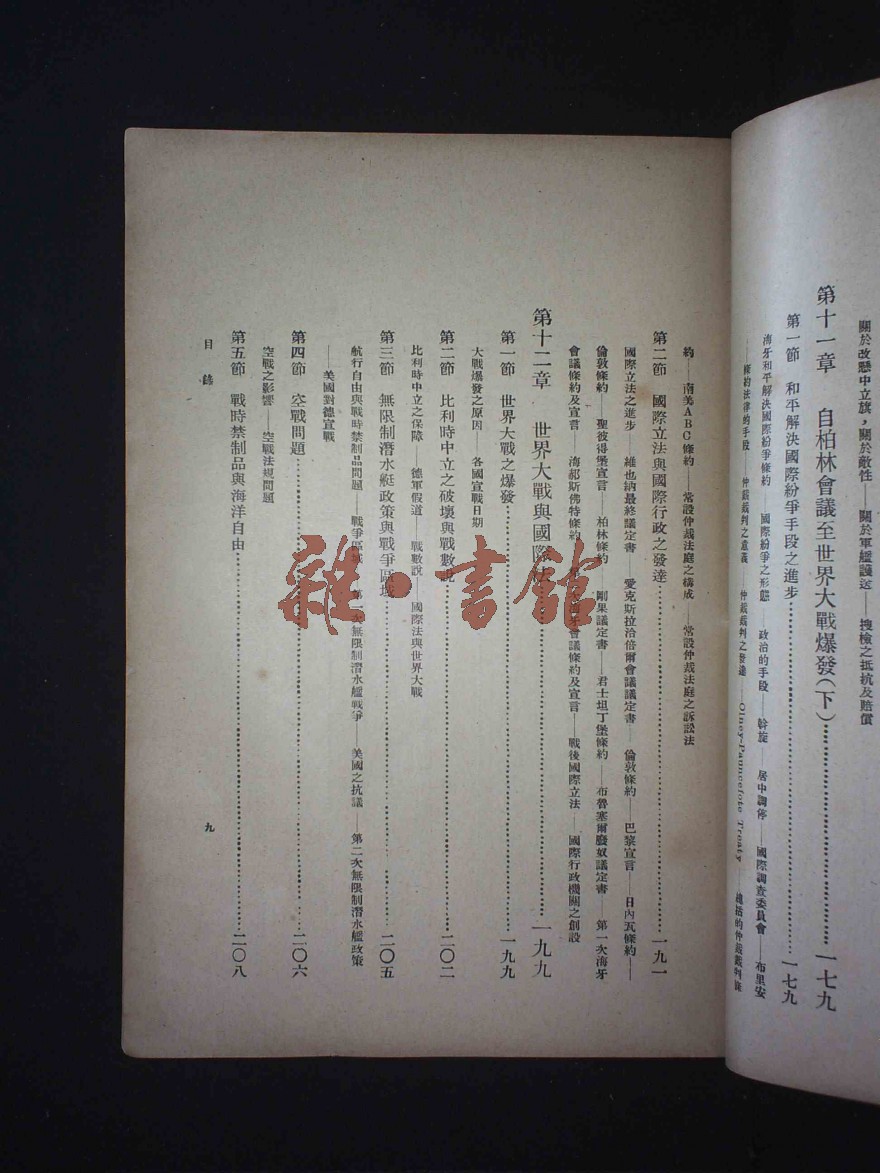 關於改懸中立旗，關於敵性——關於軍艦護送——搜檢之抵抗及賠償
第十一章　自柏林會議至世界大戰爆發（下）…………一七九
第一節　和平解決國際紛爭手段之進步…………一七九
海牙和平解決國際紛爭條約——國際紛爭之形態——政治的手段——斡旋——居中調停——國際調查委員會——布里安
——條約法律的手段——仲裁裁判之意義——仲裁裁判之發達——Olney-Pauncefote Treaty——總括的仲裁裁判條
約——南美ABC條約——常設仲裁法庭之構成——常設仲裁法庭之訴訟法
第二節　國際立法與國際行政之發達…………一九一
國際立法之進步——維也納最終議定書——愛克斯拉洽倍爾會議議定書——倫敦條約——巴黎宣言——日內瓦條約——
倫敦條約——聖彼得堡宣言——柏林條約——剛果議定書——君士坦丁堡條約——布魯塞爾廢奴議定書——第一次海牙
會議條約及宣言——海郝斯佛特條約——海牙會議條約及宣言——戰後國際立法——國際行政機關之創設
第十二章　世界大戰與國際法…………一九九
第一節　世界大戰之爆發…………一九九
大戰爆發之原因——各國宣戰日期
第二節　比利時中立之破壞與戰數說…………二〇二
比利時中立之保障——德軍假道——戰數說——國際法與世界大戰
第三節　無限制潛水艇政策與戰爭區域…………二〇五
航行自由與戰時禁制品問題——戰爭區域——第一次無限制潛水艦戰爭——美國之抗議——第二次無限制潛水艦政策
——美國對德宣戰
第四節　空戰問題…………二〇六
空戰之影響——空戰法規問題
第五節　戰時禁制品與海洋自由…………二〇八
目錄
九
雜·書館